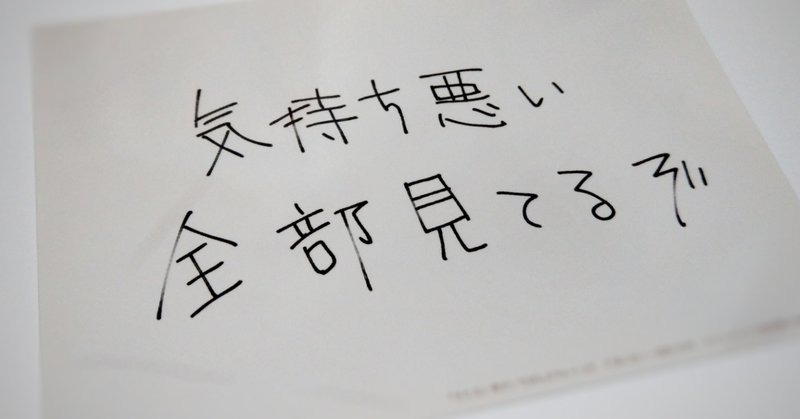 気持ち悪い
全部見てるぞ